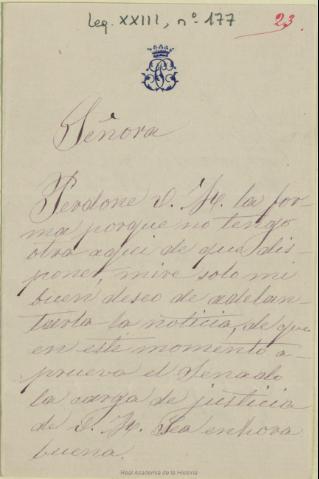 Leg. XXIII, nº 177
23.
Señora
Perdone V. M. la for-
ma porque no tengo
otra aqui de que dis-
poner, mire solo mi
buen deseo de adelan-
tarla la noticia, de que
en este momento a-
prueva el Senado
la carga de justicia
de V. M. Sea enhora
buena.
Real Academia de la Historia